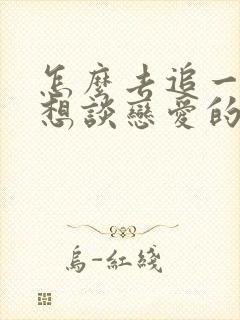 怎麼去追一
想談戀愛的
烏-紅綫